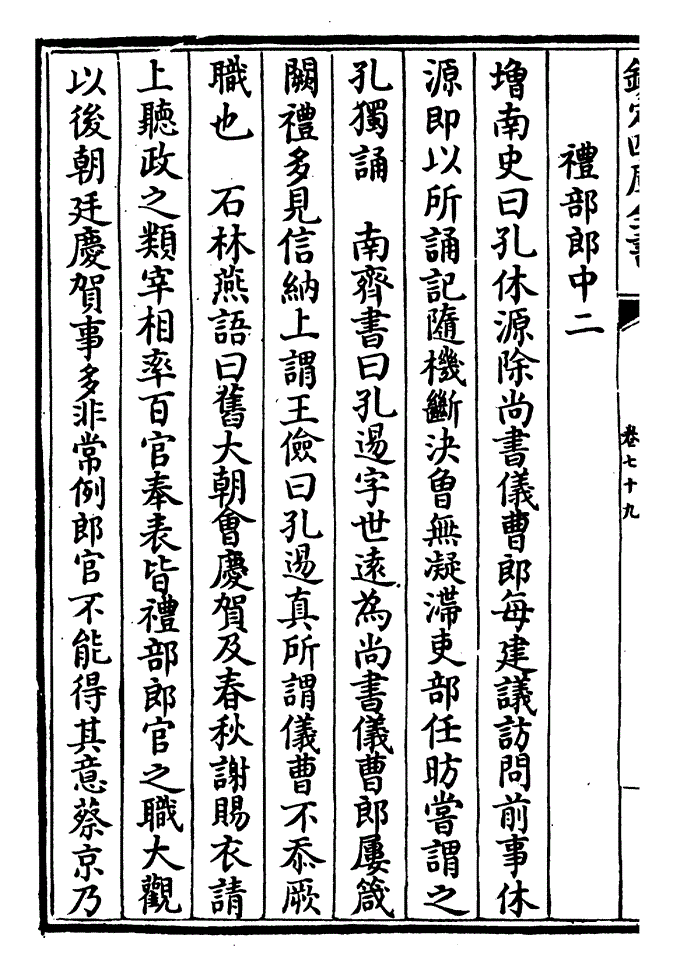 欽定四庫全書
卷七十九
禮部郎中二
增南史曰孔休源除尚書儀曹郎每建議訪問前事休
源即以所誦記隨機斷決曾無凝滯吏部任昉嘗謂之
孔獨誦　南齊書曰孔逷字世遠為尚書儀曹郎屢箴
闕禮多見信納上謂王儉曰孔逷真所謂儀曹不忝厥
職也　石林燕語曰舊大朝會慶賀及春秋謝賜衣請
上聽政之類宰相率百官奉表皆禮部郎官之職大觀
以後朝廷慶賀事多非常例郎官不能得其意蔡京乃